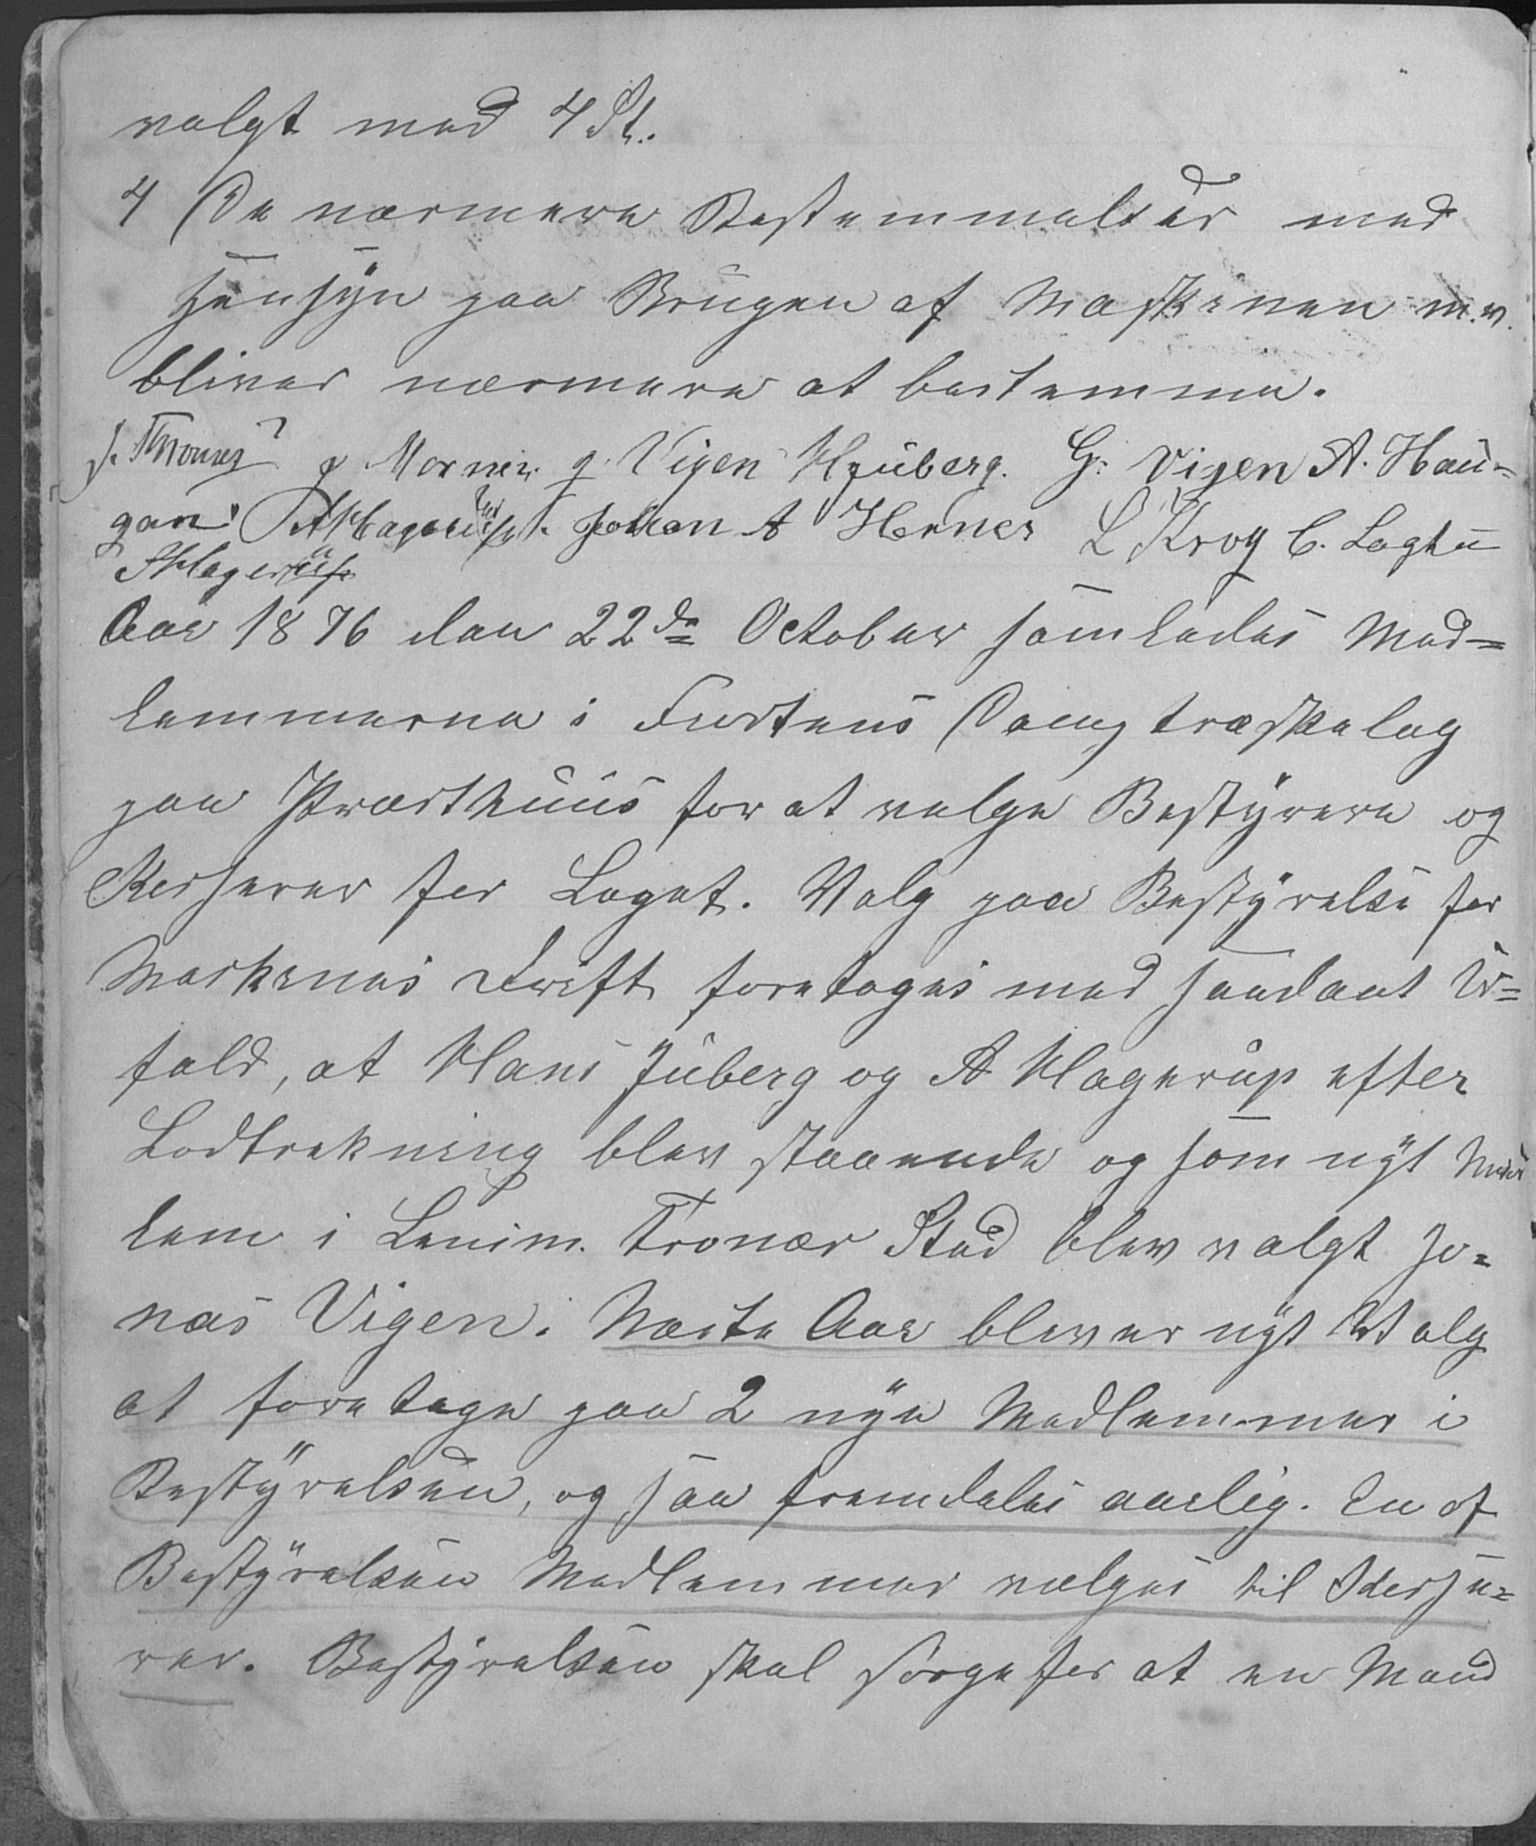 valgt med 4 St.
4 De nærmere Bestemmelser med
Hensyn paa Brugen af Maskinen m.v.
bliver nærmere at bestemme.
J. Vigen H Juberg. G. Vigen A. Hau-
gan A Hagerup. Johan A Herner L Krog C.
A Hagerup
Aar 1876 den 22de October samledes Med-
lemmerne i Furtens Damptræskelag
paa Præsthuus for at velge Bestyrere og
Kasserer for Laget. Valg paa Bestyrelse for
Maskinens Drift foretoges med saadant Ud-
fald, at Hans Juberg og A Hagerup efter
Lodtrekning blev staaende og som nyt Med
lem i Lensm. Tronæs Sted blev valgt Jo-
nas Vigen. Næste Aar bliver nyt Valg
at foretage paa 2 nye Medlemmer i
Bestyrelsen, og saa fremdeles aarlig. En af
Bestyrelsen Medlemmer vælges til Kasse-
rer. Bestyrelsen skal sørge for at en Mand